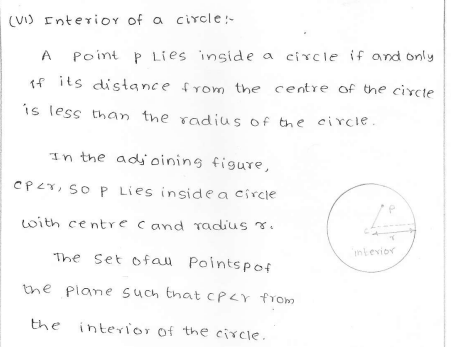 (VI) Interior of a circle:-
A point p Lies inside a circle if and only
if its distance from the centre of the circle
is less than the radius of the circle.
In the adjoining figure,
CP<r, so P Lies inside a circle
with centre C and radius r.
The Set of all Points P of
the plane such that CP<r from
the interior of the circle.
P
C
r
interior